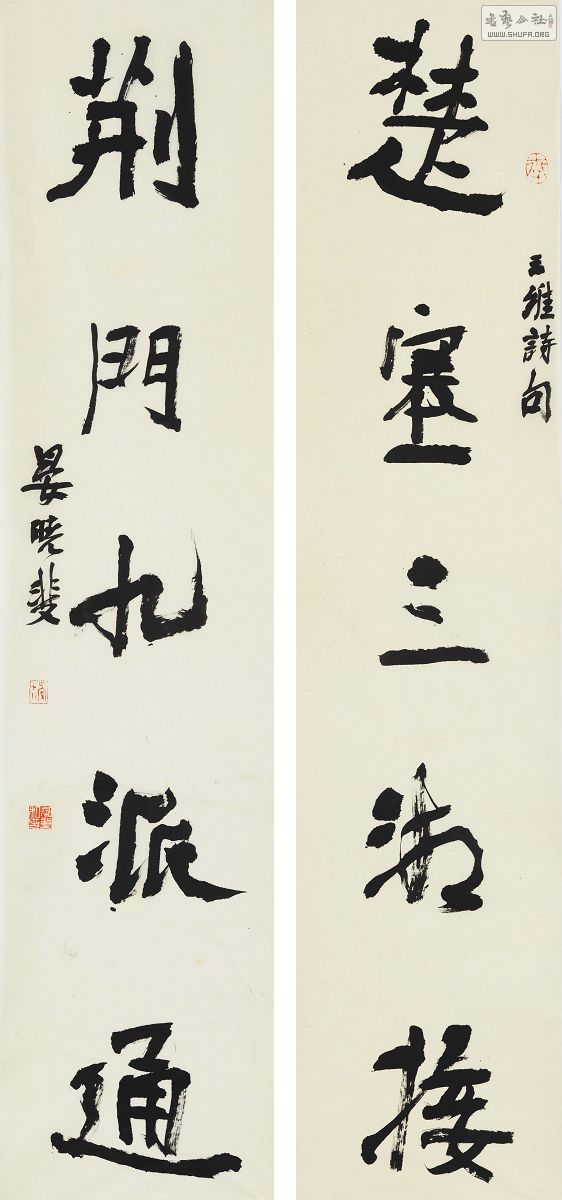 楚塞三湘接
王維詩句
荆門九派通
晏曉斐
書藝公社
WWW.SHUFA.ORG